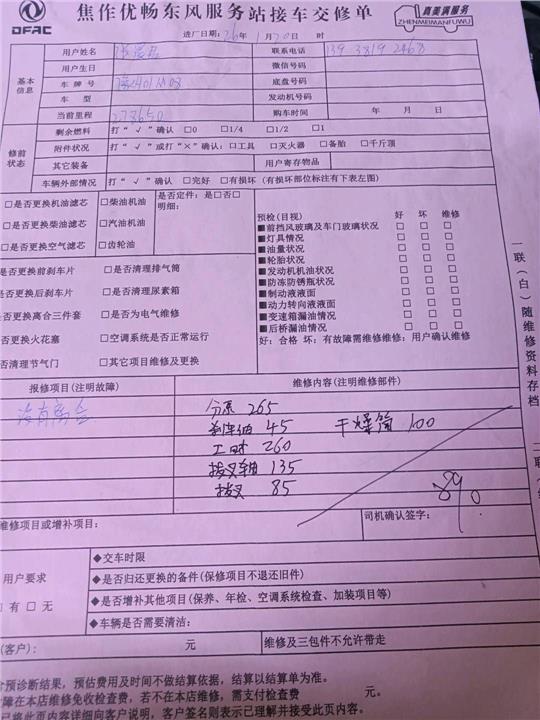 焦作优畅东风服务站接车交修单
DFAC
真美满服务
ZHENMEIMANFUWU
进厂日期: 26年 1月20日 时
基本信息
用户姓名
联系电话
用户生日
微信号码
车牌号
底盘号码
车型
发动机号码
当前里程 278650
购车时间 年 月 日
修前状态
剩余燃料 打“√”确认 □0 □1/4 □1/2 □1
附件状况 打“√”或打“×”确认: □工具 □灭火器 □备胎 □千斤顶
其它装备
用户寄存物品
车辆外部情况 打“√”确认 □完好 □有损坏 (有损坏部位标注有下表左图)
□是否更换机油滤芯 □柴油机油
是否定件: 是□否□
明细:
□是否更换柴油滤芯 □汽油机油
□是否更换空气滤芯 □齿轮油
是否更换前刹车片 □是否清理排气筒
是否更换后刹车片 □是否清理尿素箱
否更换离合三件套 □是否为电气维修
否更换火花塞 □空调系统是否正常运行
否清理节气门 □其它项目维修及更换
预检(目视) 好 坏 维修
■前挡风玻璃及车门玻璃状况 □ □ □
■灯具情况 □ □ □
■油量状况 □ □ □
■轮胎状况 □ □ □
■发动机机油状况 □ □ □
■防冻防锈瓶状况 □ □ □
■制动液液面 □ □ □
■动力转向液液面 □ □ □
■变速箱漏油情况 □ □ □
■后桥漏油情况 □ □ □
好: 合格 坏: 有故障需维修维修: 用户确认维修
一联(白)随维修资料存档
报修项目(注明故障)
维修内容(注明维修部件)
没有离合
分泵 265
刹车油 45 干燥筒 100
工时 260
拨叉轴 135
拨叉 85
890
维修项目或增补项目:
司机确认签字:
用户要求
□有 □无
◆交车时限
◆是否归还更换的备件(保修项目不退还旧件)
◆是否增补其他项目(保养、年检、空调系统检查、加装项目等)
◆车辆是否需要清洁:
(客户): 元
维修及三包件不允许带走
预诊断结果，预估费用及时间不做结算依据，结算以结算单为准。
障在本店维修免收检查费，若不在本店维修，需支付检查费 元。
已将此页内容详细向客户说明，客户签名则表示已理解并接受此页内容。